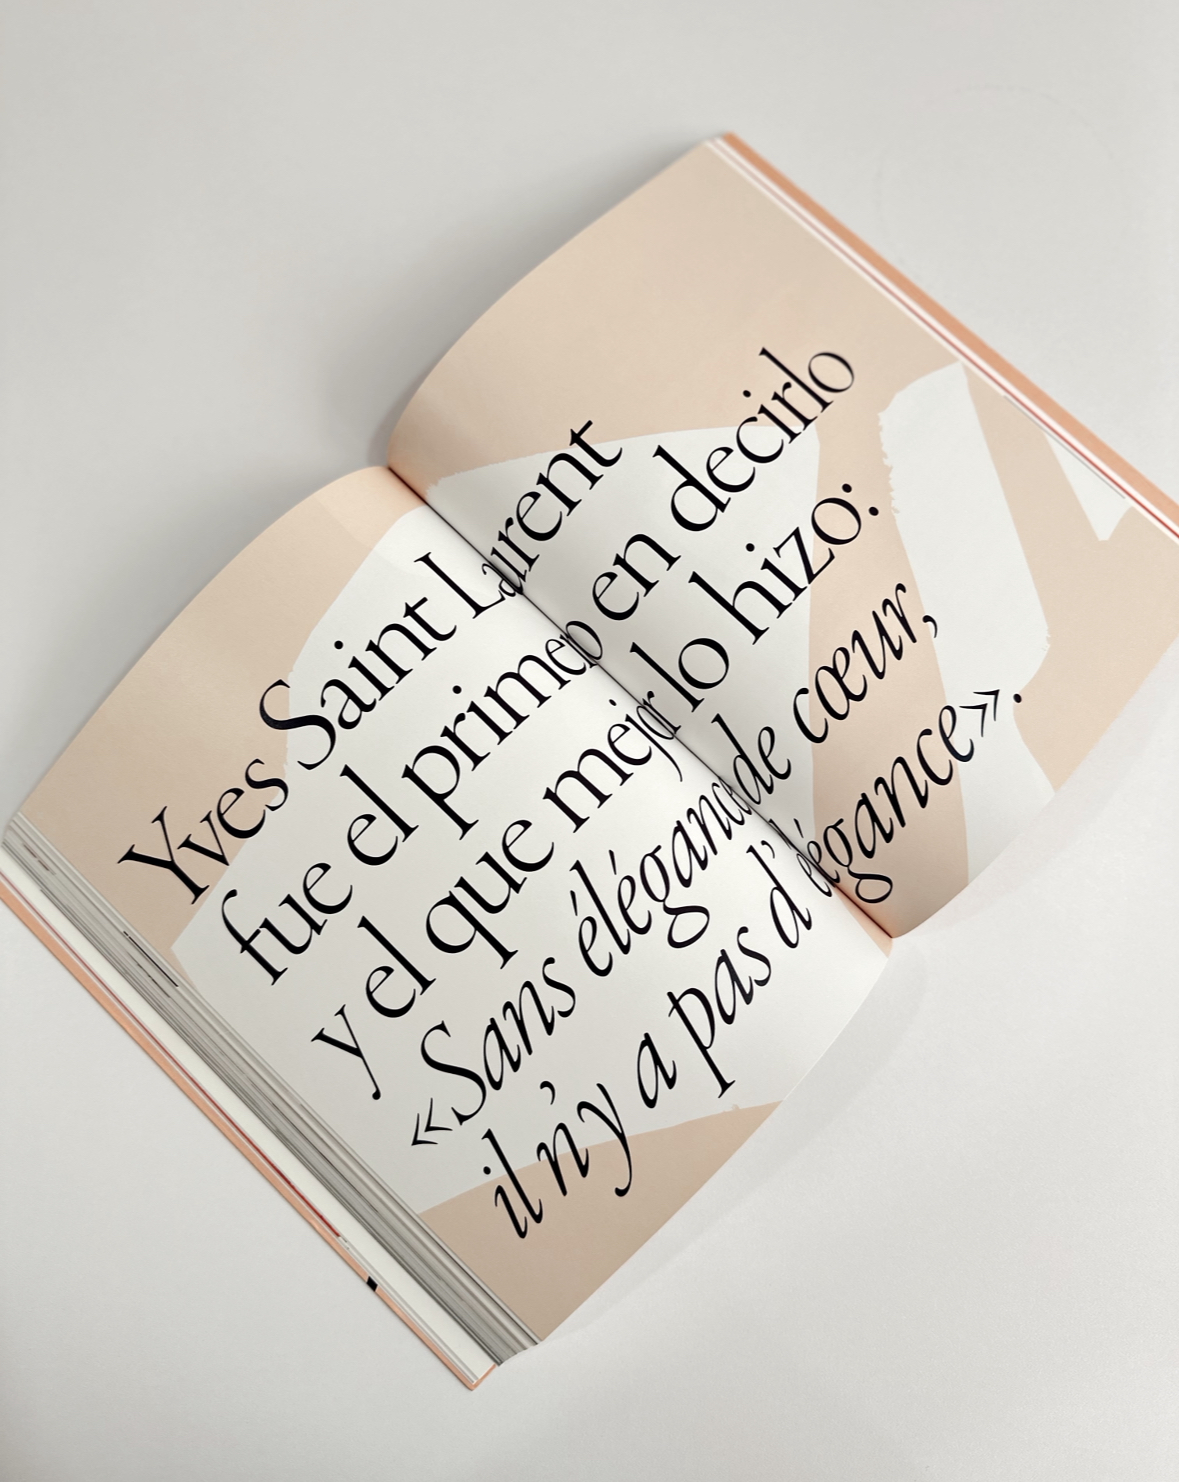 Yves Saint Laurent
fue el primero en decirlo
y el que mejor lo hizo:
«Sans élégance de cœur,
il n’y a pas d’élégance».